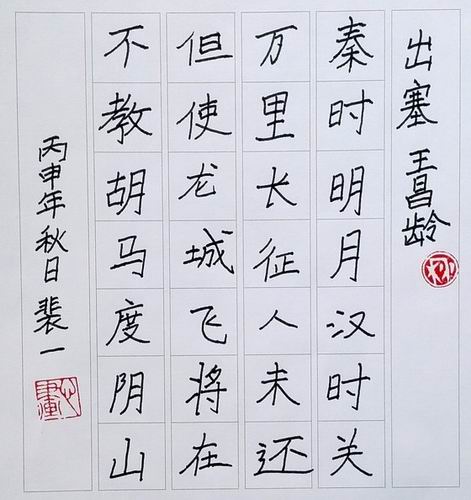 出塞 王昌龄
秦时明月汉时关
万里长征人未还
但使龙城飞将在
不教胡马度阴山
丙申年秋日 裴一